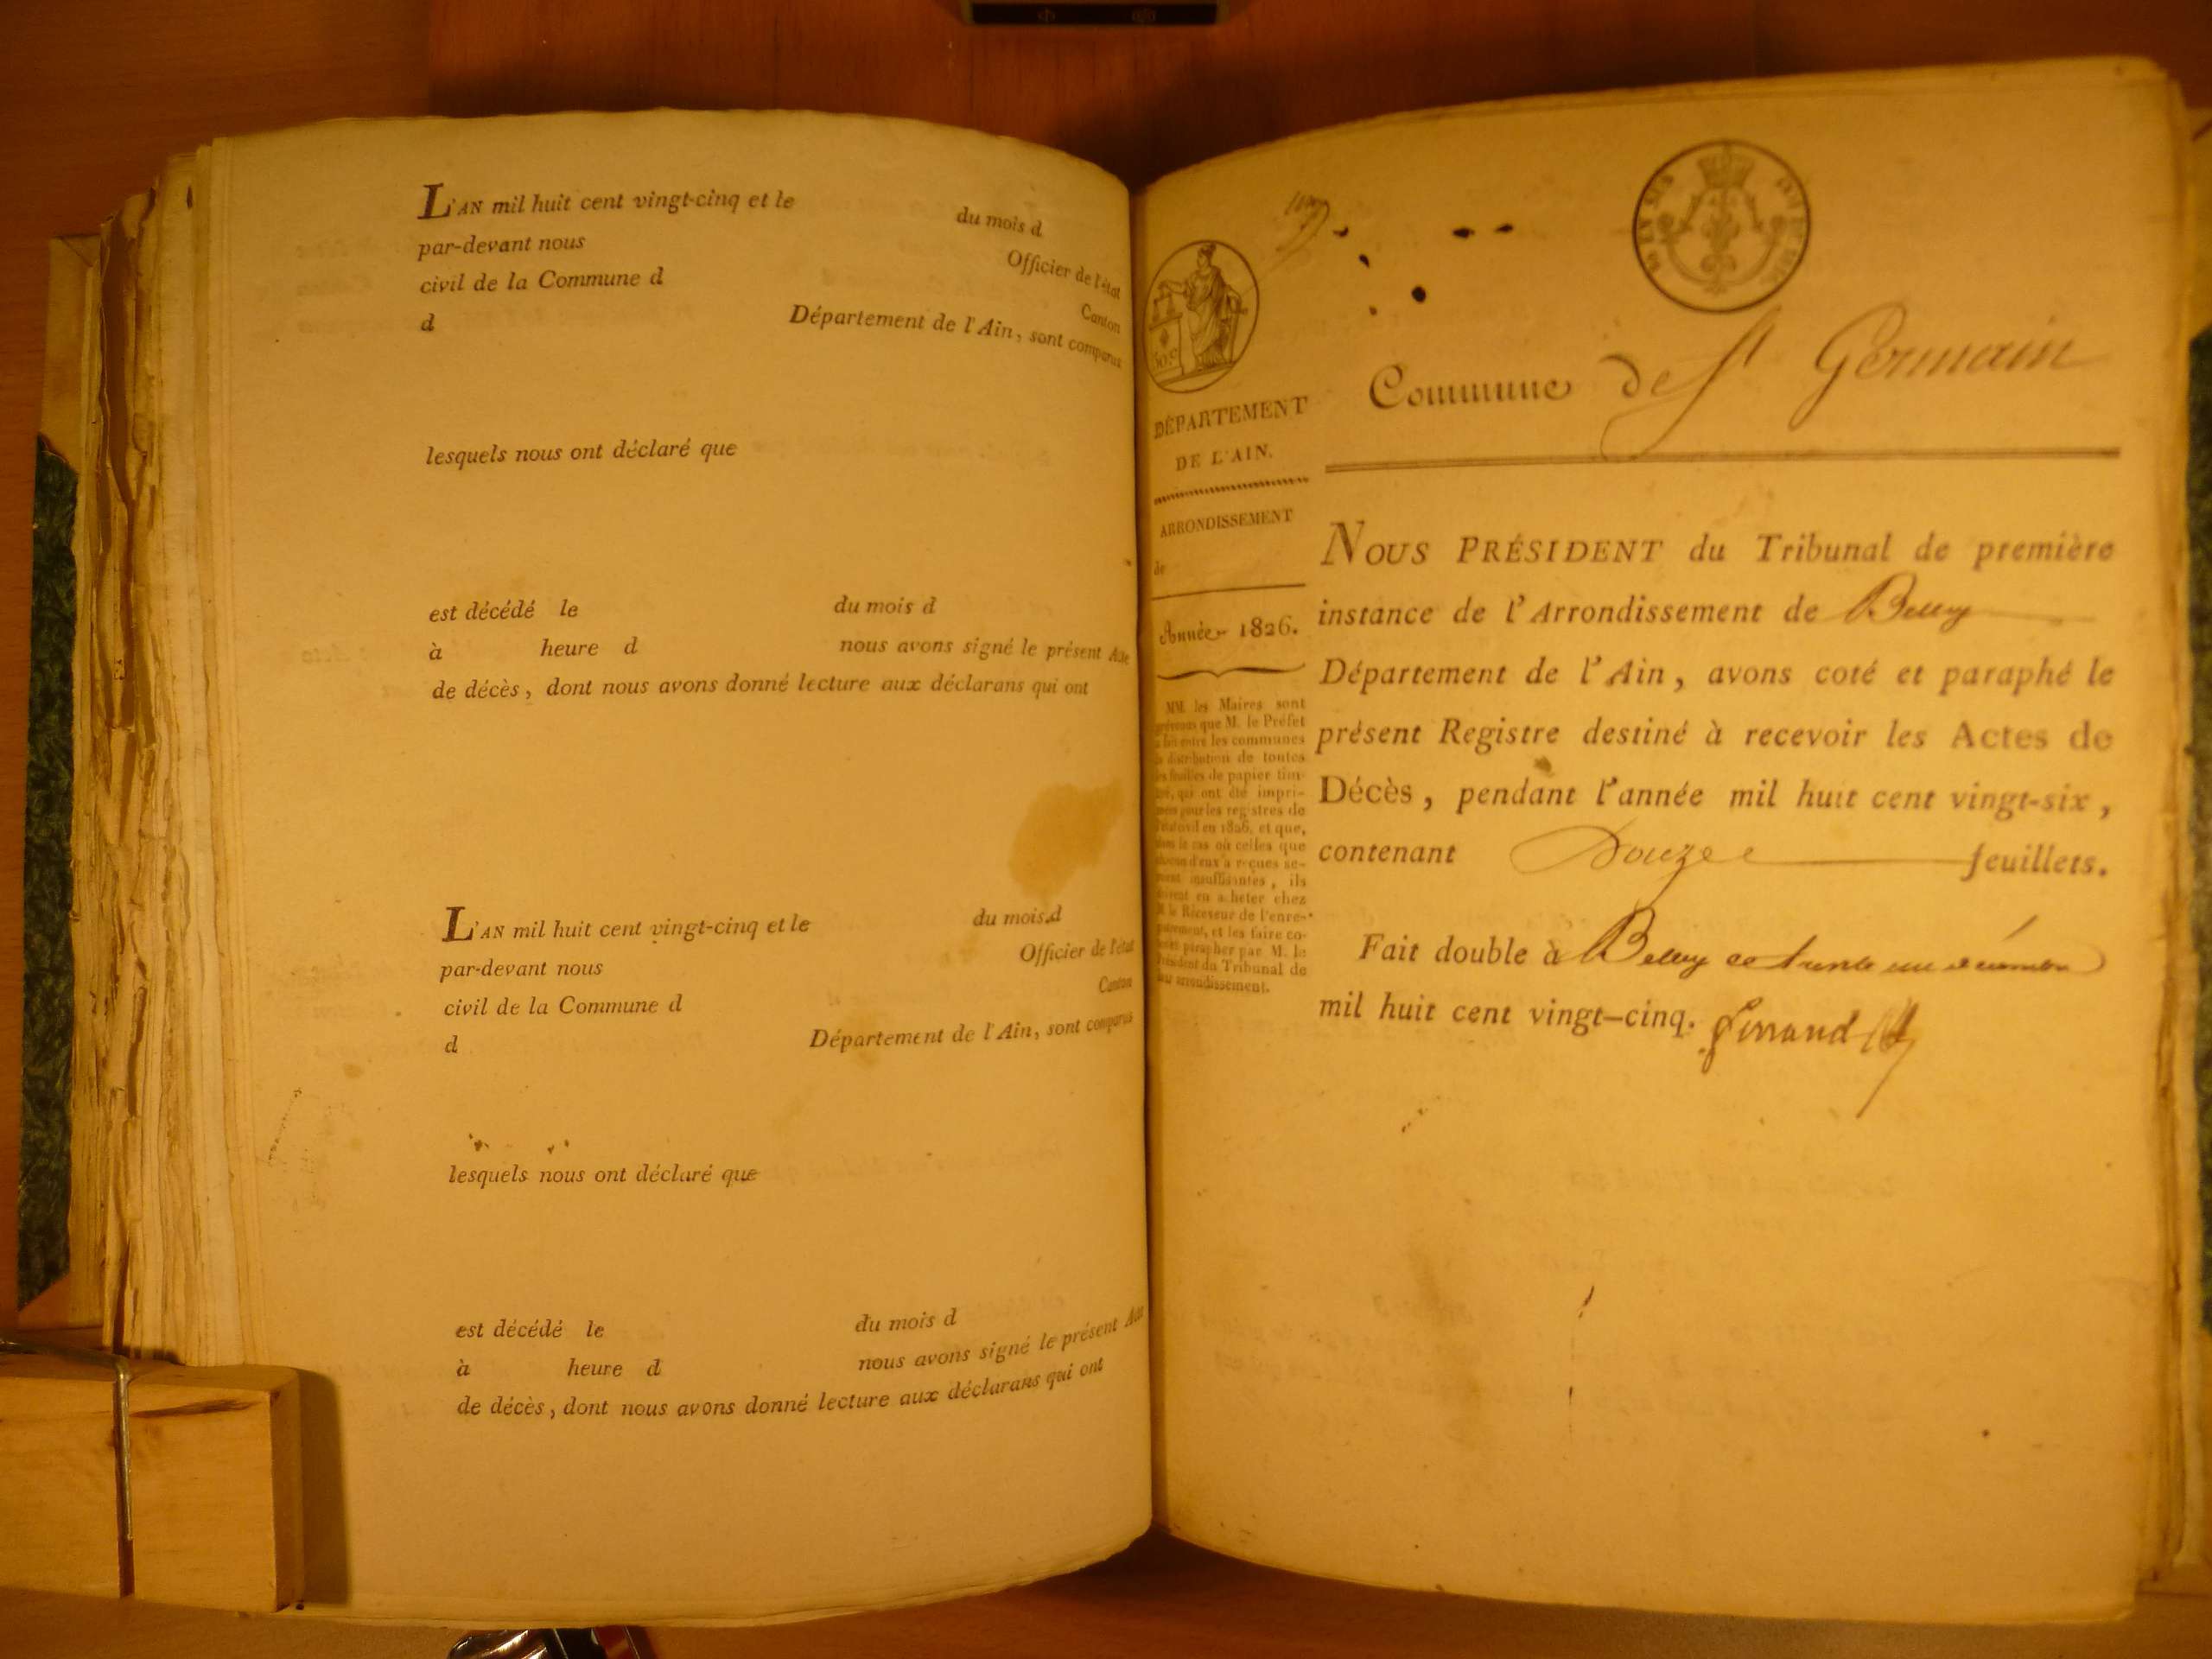 L'AN mil huit cent vingt-cinq et le du mois d
par-devant nous Officier de l'état
civil de la Commune d Canton
d Département de l'Ain, sont comparus
lesquels nous ont déclaré que
est décédé le du mois d
à heure d nous avons signé le présent Acte
de décès, dont nous avons donné lecture aux déclarans qui ont
L'AN mil huit cent vingt-cinq et le du mois d
par-devant nous Officier de l'état
civil de la Commune d Canton
d Département de l'Ain, sont comparus
lesquels nous ont déclaré que
est décédé le du mois d
à heure d nous avons signé le présent Acte
de décès, dont nous avons donné lecture aux déclarans qui ont
50 c
DÉPARTEMENT
DE L'AIN.
ARRONDISSEMENT
de
Année 1826.
MM. les Maires sont
prévenus que M. le Préfet
a fait entre les communes
la distribution de toutes
les feuilles de papier tim-
bré, qui ont été impri-
mées pour les registres de
en 1826, et que,
dans le cas où celles que
chacun d'eux a reçues se-
raient insuffisantes, ils
doivent en acheter chez
M. le Receveur de l'enre-
gistrement, et les faire co-
ter et parapher par M. le
Président du Tribunal de
leur arrondissement.
Commune de St Germain
NOUS PRÉSIDENT du Tribunal de première
instance de l'Arrondissement de Belley
Département de l'Ain, avons coté et paraphé le
présent Registre destiné à recevoir les Actes de
Décès, pendant l'année mil huit cent vingt-six,
contenant Douze feuillets.
Fait double à Belley ce trente un décembre
mil huit cent vingt-cinq.